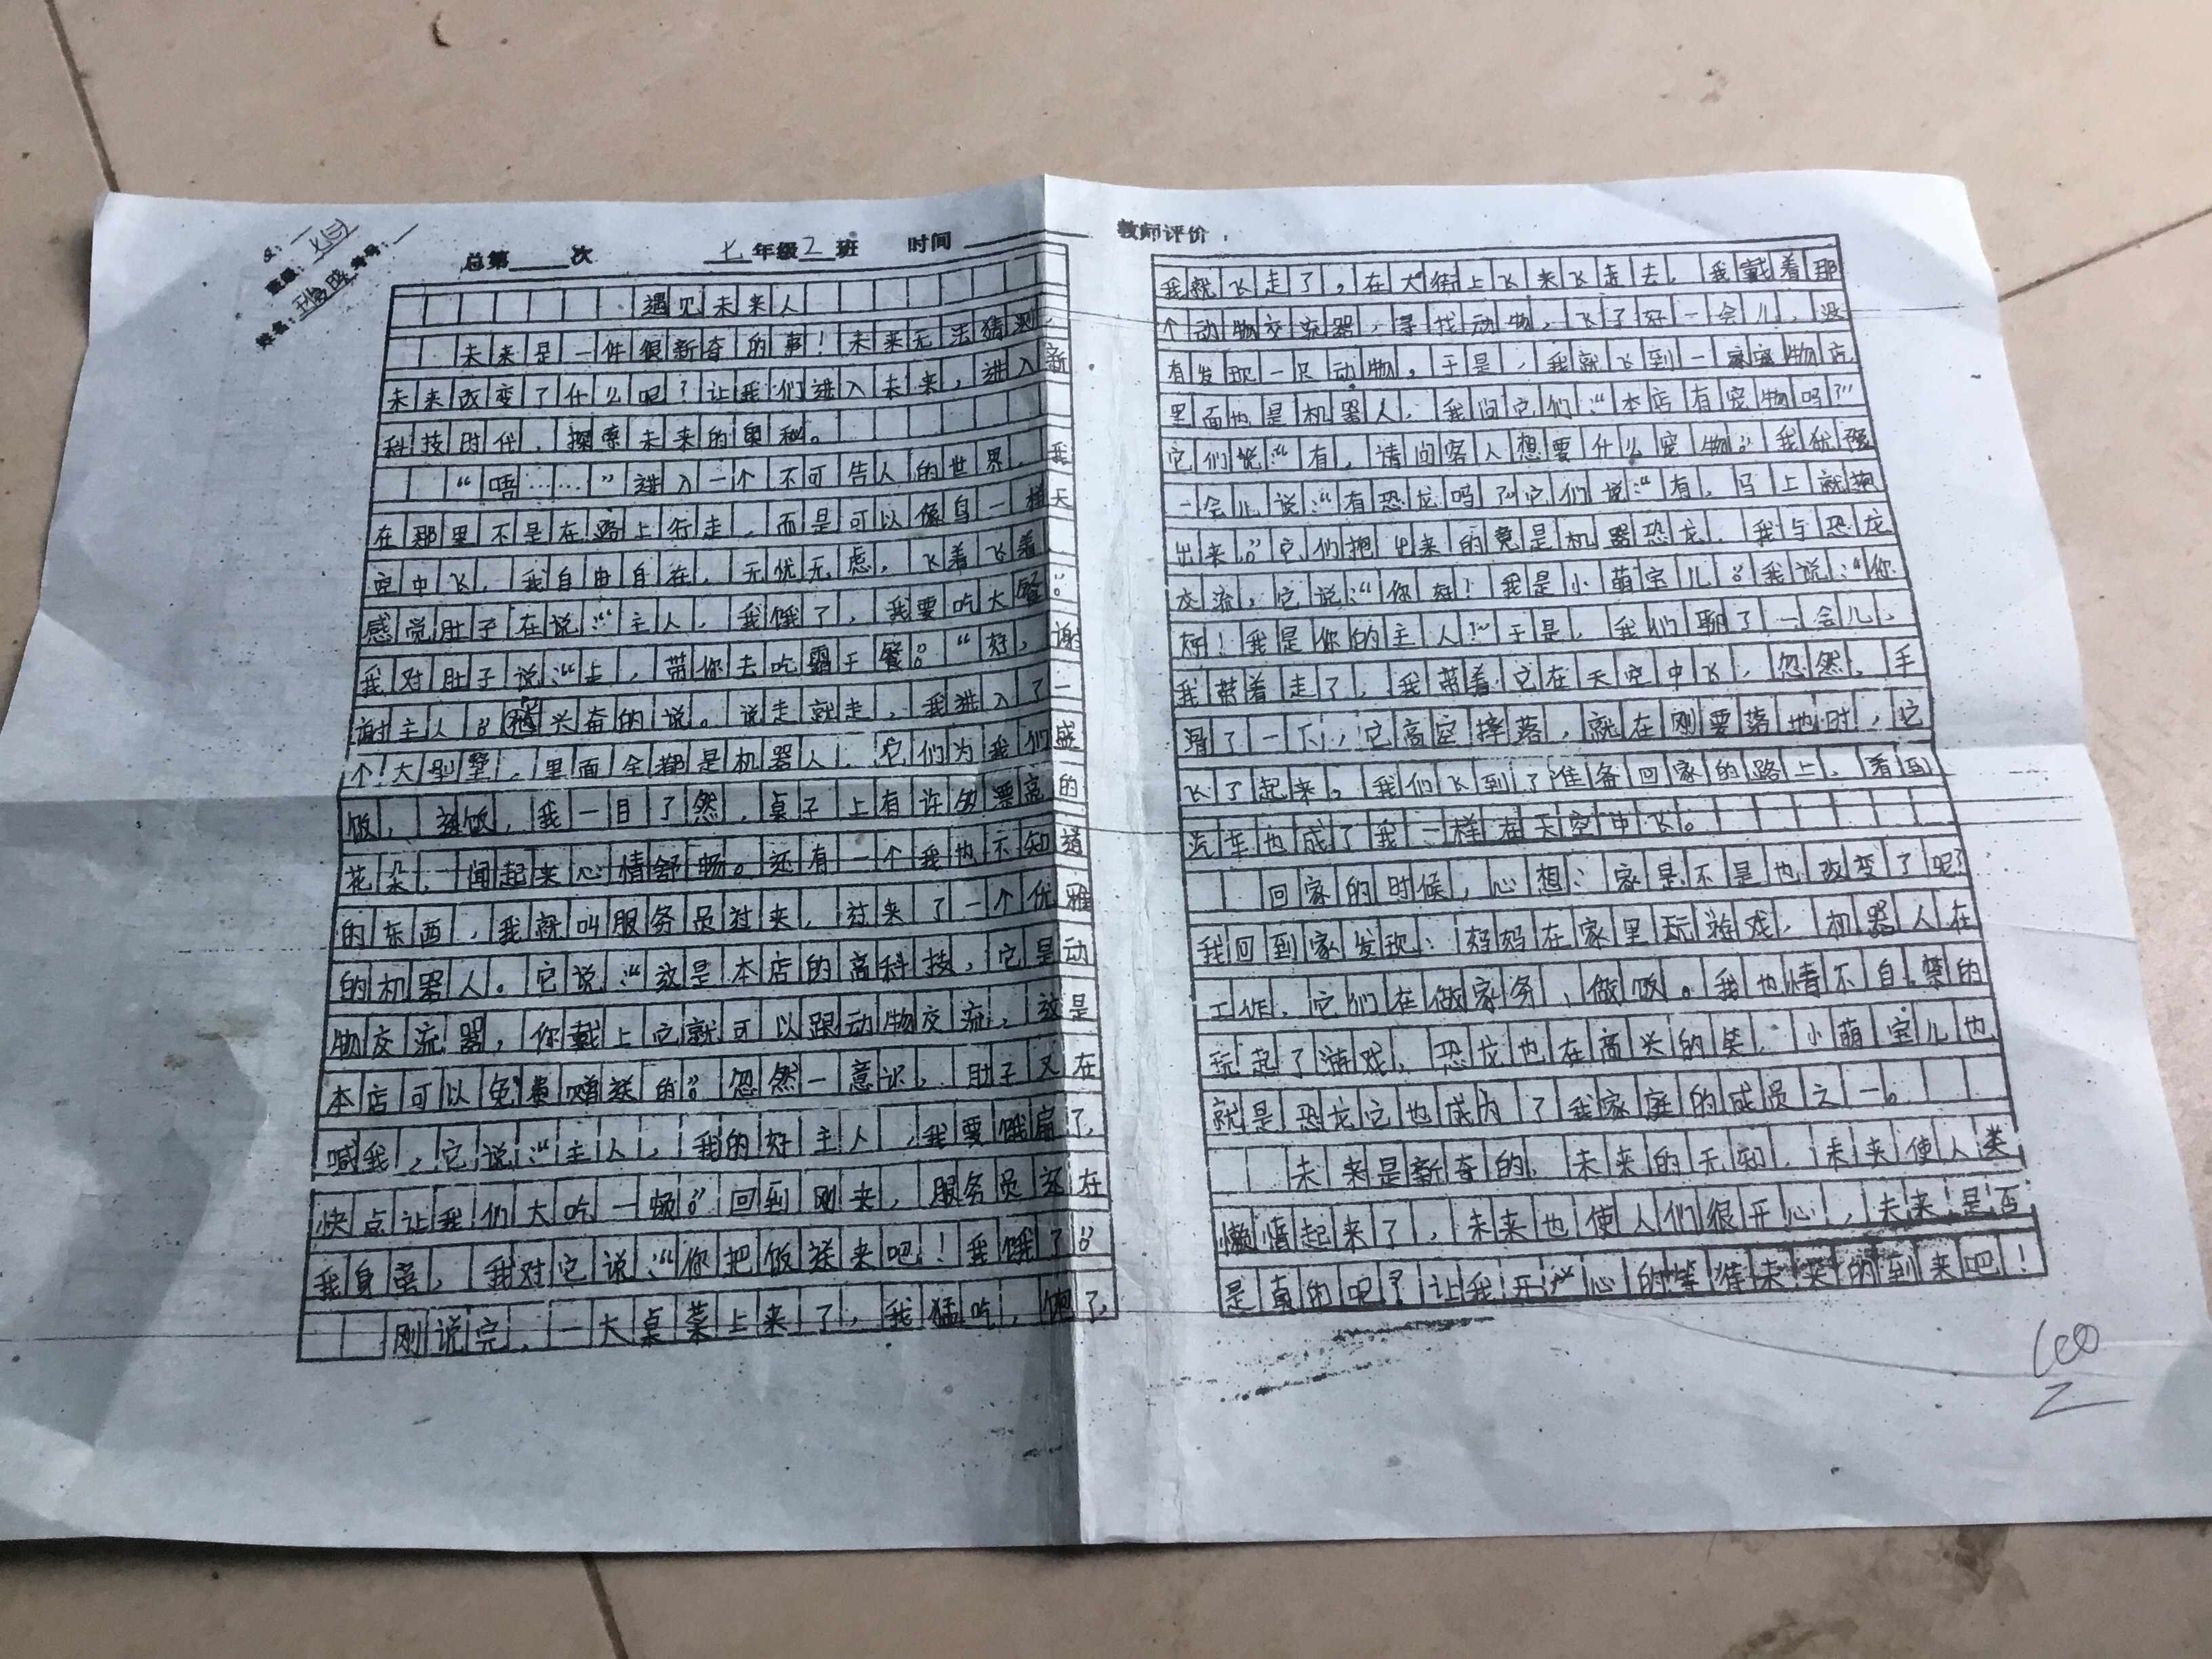 班级：七(2)
姓名： 考号：
总第 次 七年级2班 时间
遇见未来人
未来是一件很新奇的事！未来无法猜测，
未来改变了什么吧？让我们进入未来，进入新
科技时代，探索未来的奥秘。
“唔……”进入一个不可告人的世界，我
在那里不是在路上行走，而是可以像鸟一样天
空中飞，我自由自在，无忧无虑，飞着飞着
感觉肚子在说：“主人，我饿了，我要吃大餐。”
我对肚子说：“走，带你去吃霸王餐。”“好，谢
谢主人。” 兴奋的说。说走就走，我进入了一
个大别墅，里面全都是机器人，它们为我们盛
饭，盛饭，我一目了然，桌子上有许多漂亮的
花朵，闻起来心情舒畅。还有一个我也不知道
的东西，我就叫服务员过来，过来了一个优雅
的机器人。它说：“这是本店的高科技，它是动
物交流器，你戴上它就可以跟动物交流，这是
本店可以免费赠送的。”忽然一意识，肚子又在
喊我，它说：“主人，我的好主人，我要饿扁了，
快点让我们大吃一顿。”回到刚来，服务员还在
我身旁，我对它说：“你把饭送来吧！我饿了。”
刚说完，一大桌菜上来了，我猛吃，饱了，
教师评价：
我就飞走了，在大街上飞来飞走去，我戴着那
个动物交流器，寻找动物，飞了好一会儿，没
有发现一只动物，于是，我就飞到一家宠物店，
里面也是机器人，我问它们：“本店有宠物吗？”
它们说：“有，请问客人想要什么宠物。”我犹豫
一会儿说：“有恐龙吗？”它们说：“有，马上就抱
出来。”它们抱出来的竟是机器恐龙，我与恐龙
交流，它说：“你好！我是小萌宝儿。”我说：“你
好！我是你的主人！”于是，我们聊了一会儿，
我带着走了，我带着它在天空中飞，忽然，手
滑了一下，它高空摔落，就在刚要落地时，它
飞了起来，我们飞到了准备回家的路上，看到
汽车也成了我一样在天空中飞。
回家的时候，心想：家是不是也改变了呢？
我回到家发现：妈妈在家里玩游戏，机器人在
工作，它们在做家务、做饭。我也情不自禁的
玩起了游戏，恐龙也在高兴的笑，小萌宝儿也
就是恐龙它也成为了我家庭的成员之一。
未来是新奇的，未来的无知，未来使人类
懒惰起来了，未来也使人们很开心，未来是否
是真的吧？让我开开心心的等待未来的到来吧！